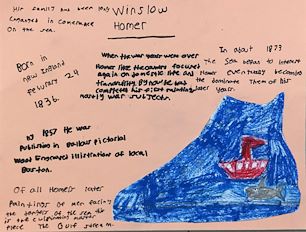 His family had been long
engaged in commerace
on the sea.
Winslow
Homer
Born in
new England
Feburary 24
1836.
When the war years were over
Homer like the country focused
again on domestic life and
tranquility. By now he has
completed his first painting
mostly war subjects.
In about 1873
the sea began to interest
Homer eventually become
the dominate Them of his
later years.
By 1857 He was
Publishing in Ballous Pictorial
Wood Engraved Illistration of local
Boston.
Of all Homers later
Paintings of men facing
the dangers of the sea
is the culminating master
Piece The Gulf Stream.